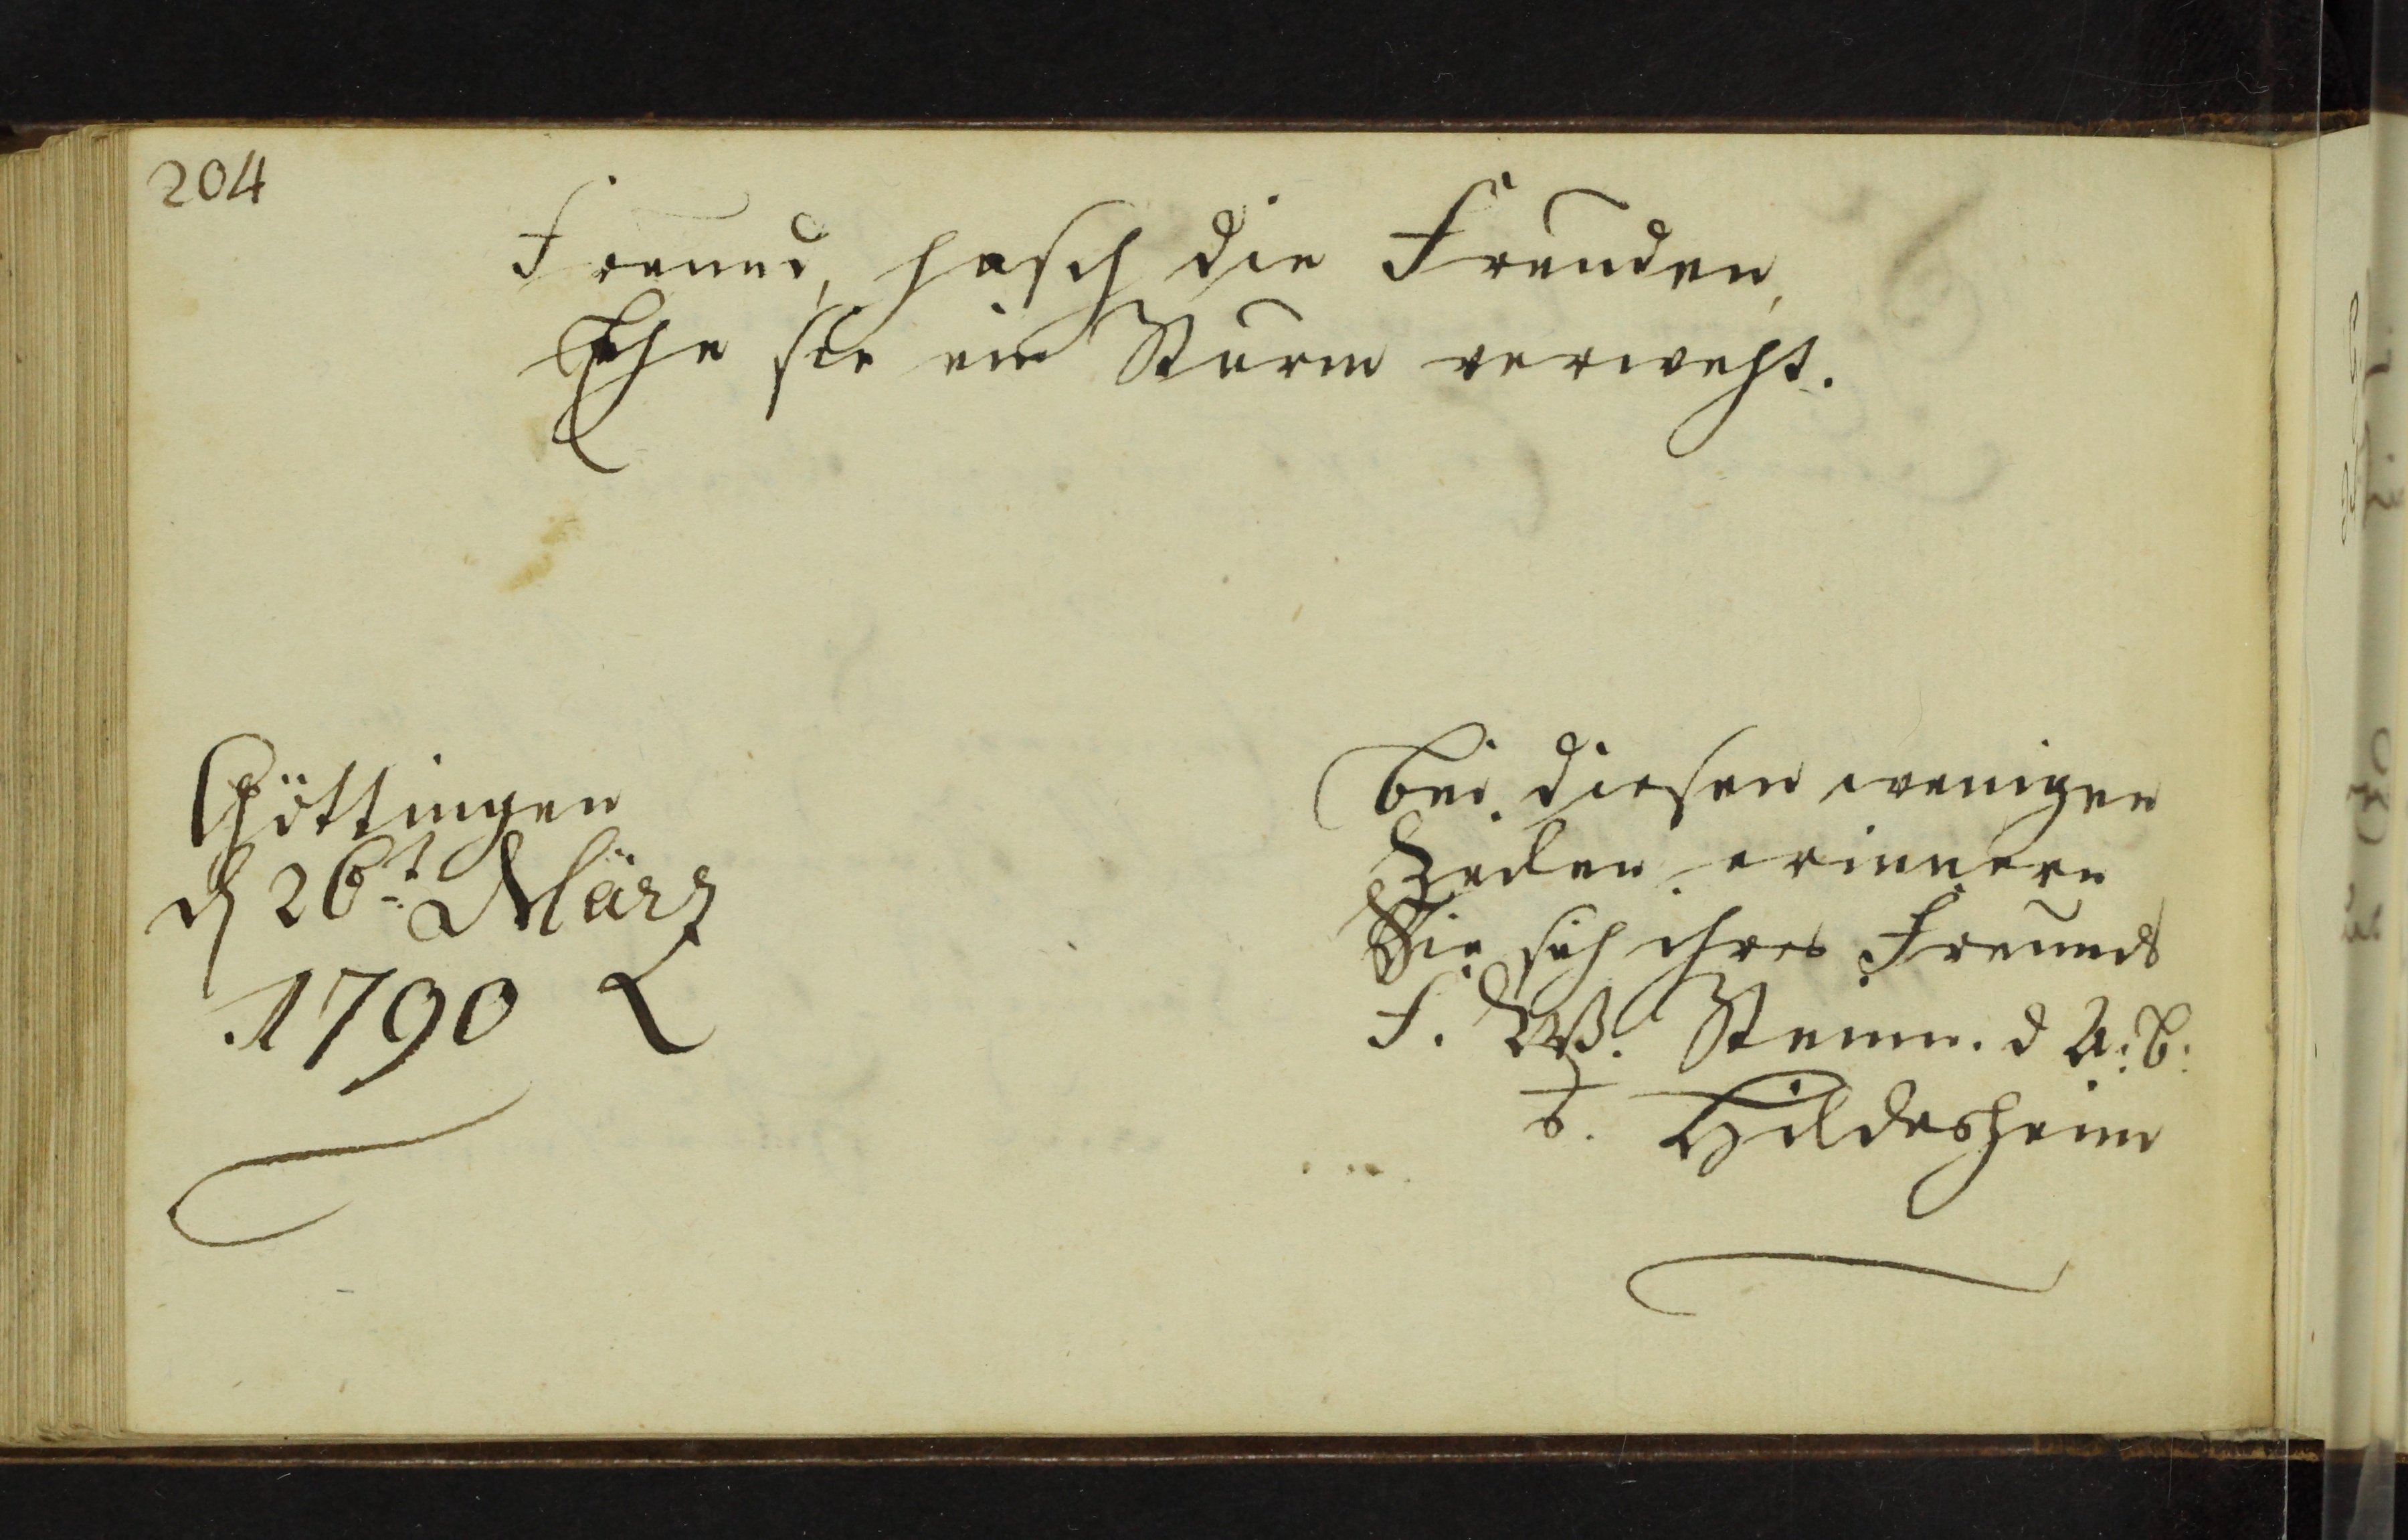 204
Freund, hasch die Freuden,
Ehe sie ein Sturm verweht.
Göttingen
d 26t März
1790
Bei diesen wenigen
Zeilen erinnern
Sie sich ihres Freunds
F. W. d A: B:
Hildesheim